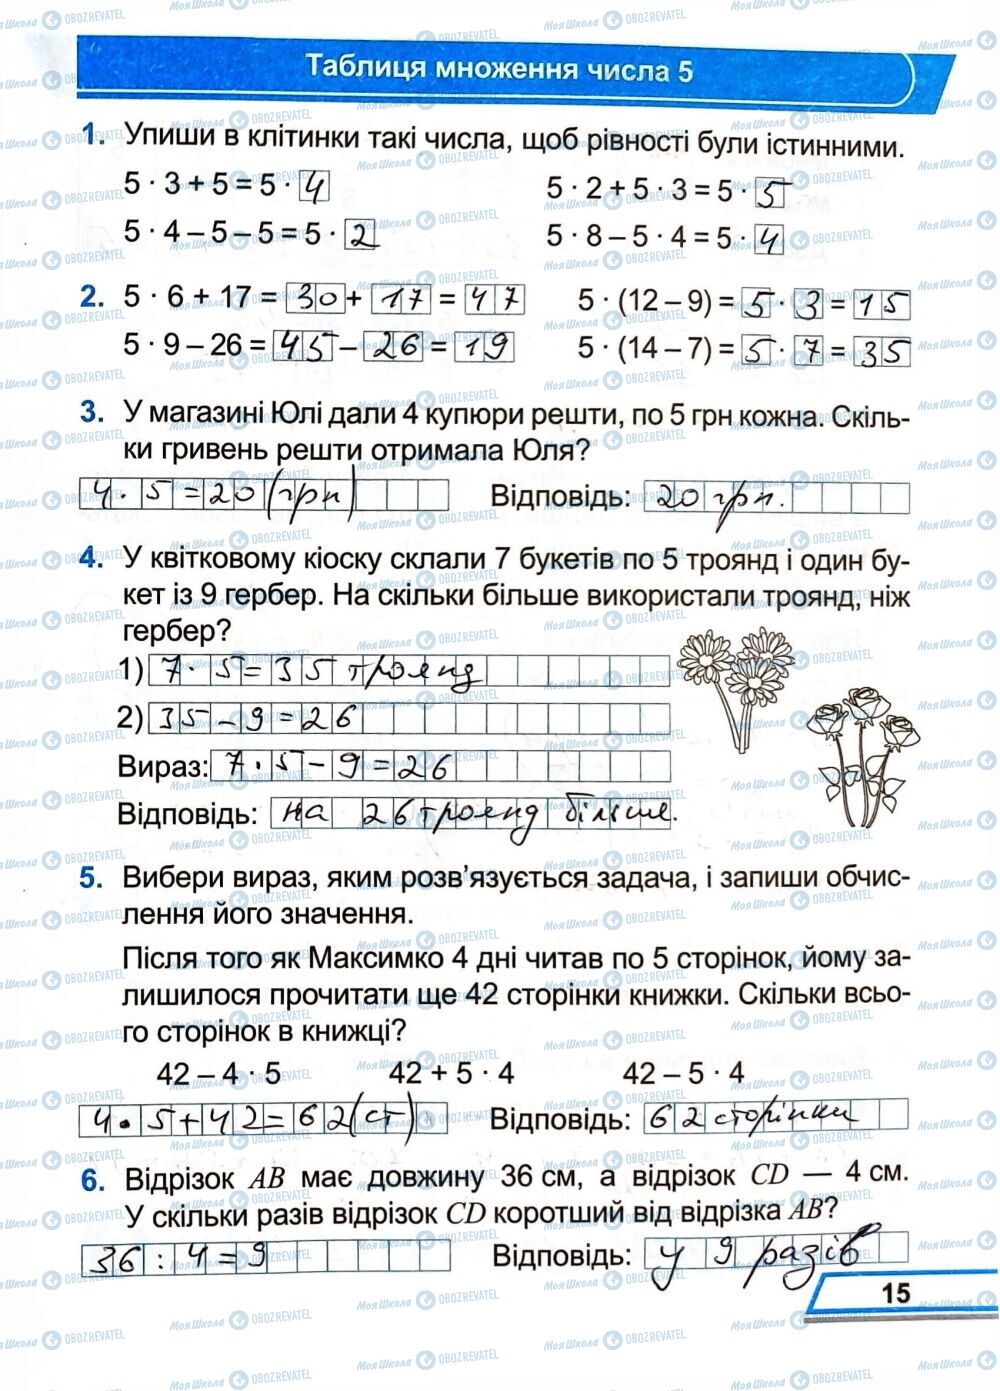 Таблиця множення числа 5
1. Упиши в клітинки такі числа, щоб рівності були істинними.
5 · 3 + 5 = 5 · 4
5 · 2 + 5 · 3 = 5 · 5
5 · 4 – 5 – 5 = 5 · 2
5 · 8 – 5 · 4 = 5 · 4
2. 5 · 6 + 17 = 30 + 17 = 47
5 · (12 – 9) = 5 · 3 = 15
5 · 9 – 26 = 45 – 26 = 19
5 · (14 – 7) = 5 · 7 = 35
3. У магазині Юлі дали 4 купюри решти, по 5 грн кожна. Скіль-
ки гривень решти отримала Юля?
4 · 5 = 20 (грн)
Відповідь: 20 грн.
4. У квітковому кіоску склали 7 букетів по 5 троянд і один бу-
кет із 9 гербер. На скільки більше використали троянд, ніж
гербер?
1) 7 · 5 = 35 троянд
2) 35 – 9 = 26
Вираз: 7 · 5 – 9 = 26
Відповідь: на 26 троянд більше.
5. Вибери вираз, яким розв’язується задача, і запиши обчис-
лення його значення.
Після того як Максимко 4 дні читав по 5 сторінок, йому за-
лишилося прочитати ще 42 сторінки книжки. Скільки всьо-
го сторінок в книжці?
42 – 4 · 5
42 + 5 · 4
42 – 5 · 4
4 · 5 + 42 = 62 (ст)
Відповідь: 62 сторінки
6. Відрізок AB має довжину 36 см, а відрізок CD — 4 см.
У скільки разів відрізок CD коротший від відрізка AB?
36 : 4 = 9
Відповідь: у 9 разів
15
МояШкола OBOZREVATEL